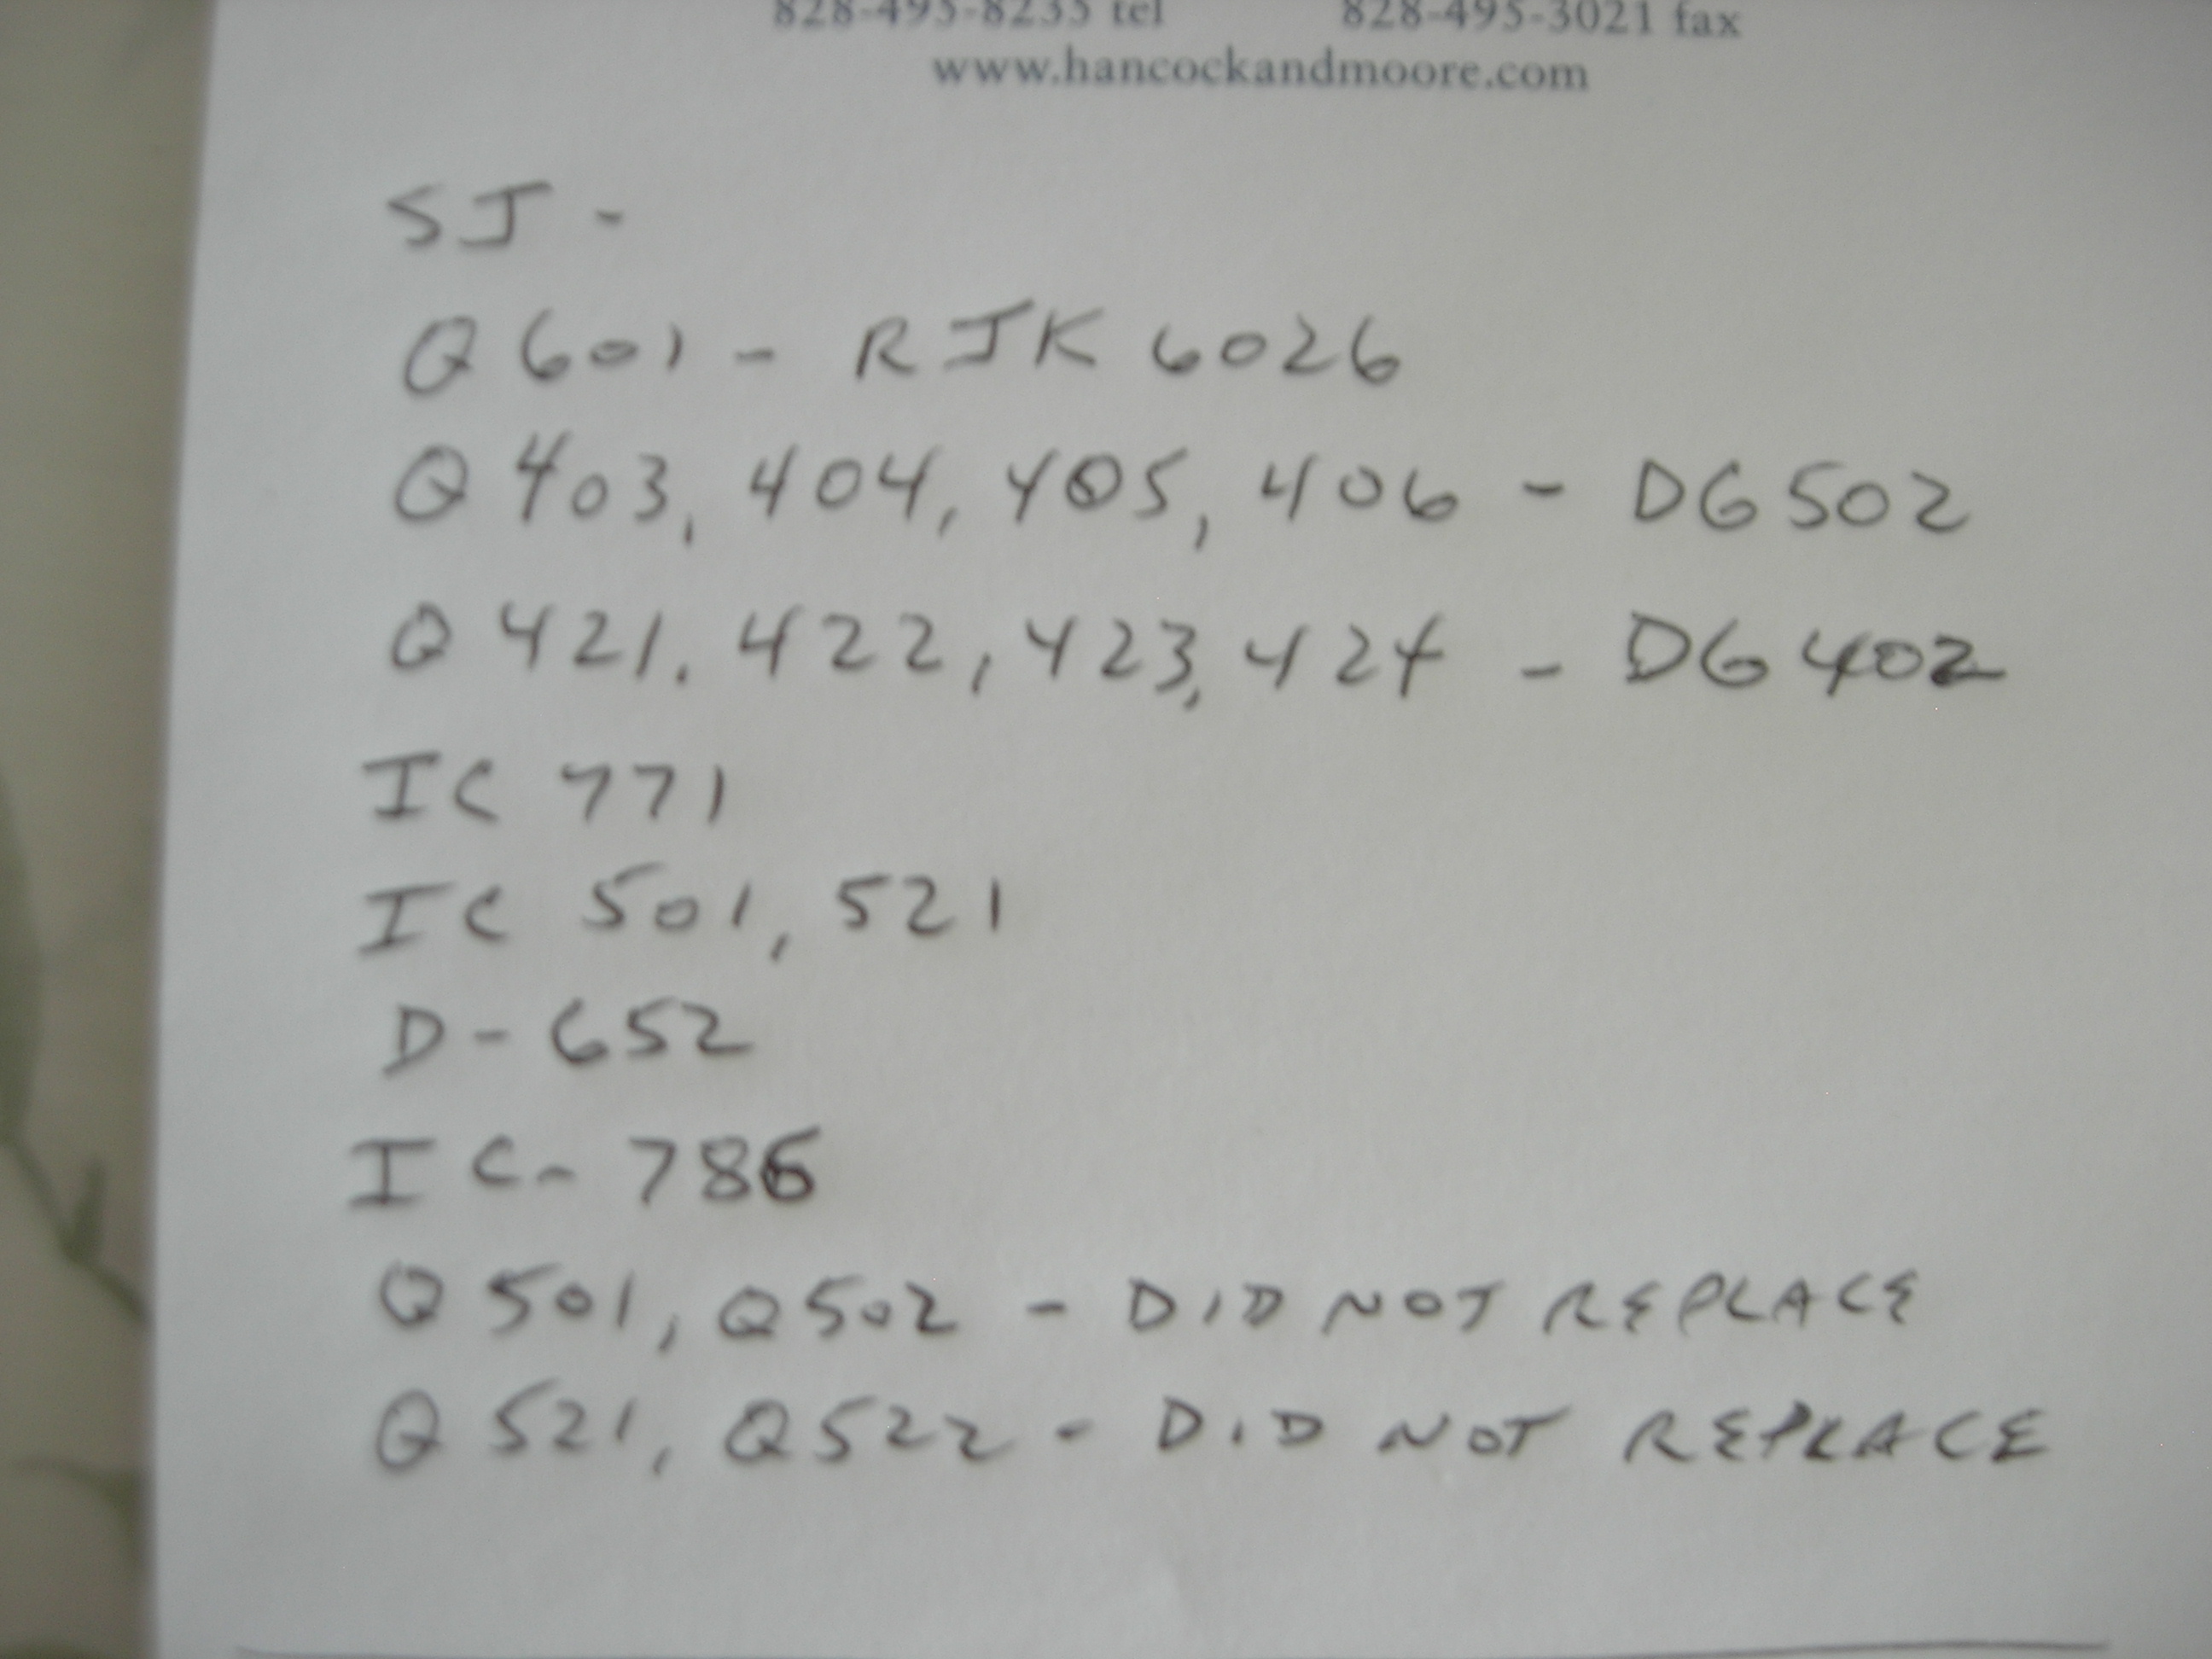 828-495-8235 tel 828-495-3021 fax
www.hancockandmoore.com
SJ -
Q601 - RJK6026
Q 403, 404, 405, 406 - DG502
Q 421. 422, 423, 424 - DG402
IC 771
IC 501, 521
D-652
IC-786
Q 501, Q502 - DID NOT REPLACE
Q 521, Q522 - DID NOT REPLACE